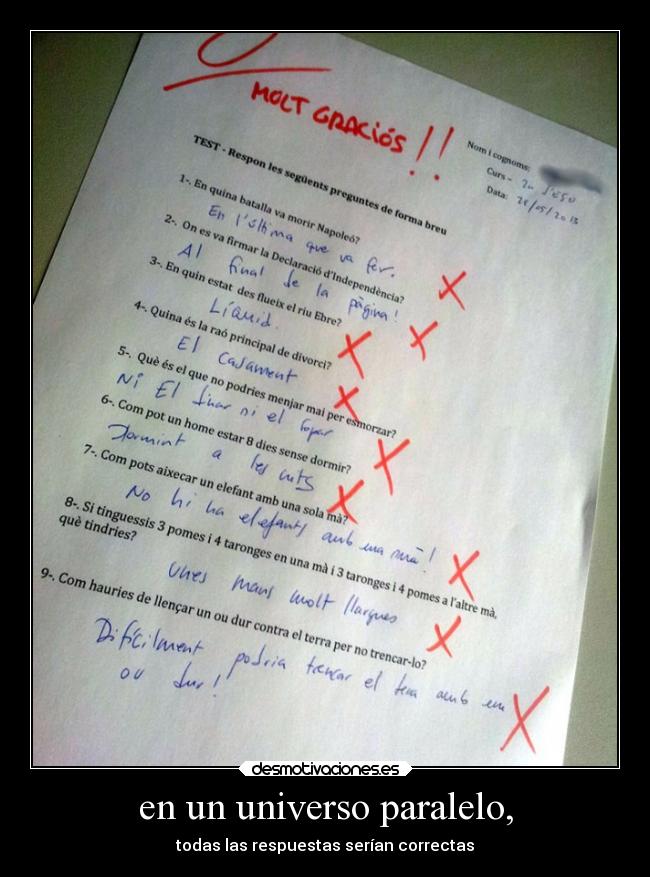 MOLT GRACIÓS!!
Nom i cognoms:
Curs - 2n d'ESO
Data: 28/05/2013
TEST - Respon les següents preguntes de forma breu
1-. En quina batalla va morir Napoleó?
En l'última que va fer.
2-. On es va firmar la Declaració d'Independència?
Al final de la pàgina!
3-. En quin estat des flueix el riu Ebre?
Líquid.
4-. Quina és la raó principal de divorci?
El Casament
5-. Què és el que no podries menjar mai per esmorzar?
Ni El dinar ni el sopar
6-. Com pot un home estar 8 dies sense dormir?
Dormint a les nits
7-. Com pots aixecar un elefant amb una sola mà?
No hi ha elefants amb una mà!
8-. Si tinguessis 3 pomes i 4 taronges en una mà i 3 taronges i 4 pomes a l'altre mà,
què tindries?
Unes mans molt llargues
9-. Com hauries de llençar un ou dur contra el terra per no trencar-lo?
Difícilment podria trencar el terra amb un
ou dur!
desmotivaciones.es
en un universo paralelo,
todas las respuestas serían correctas